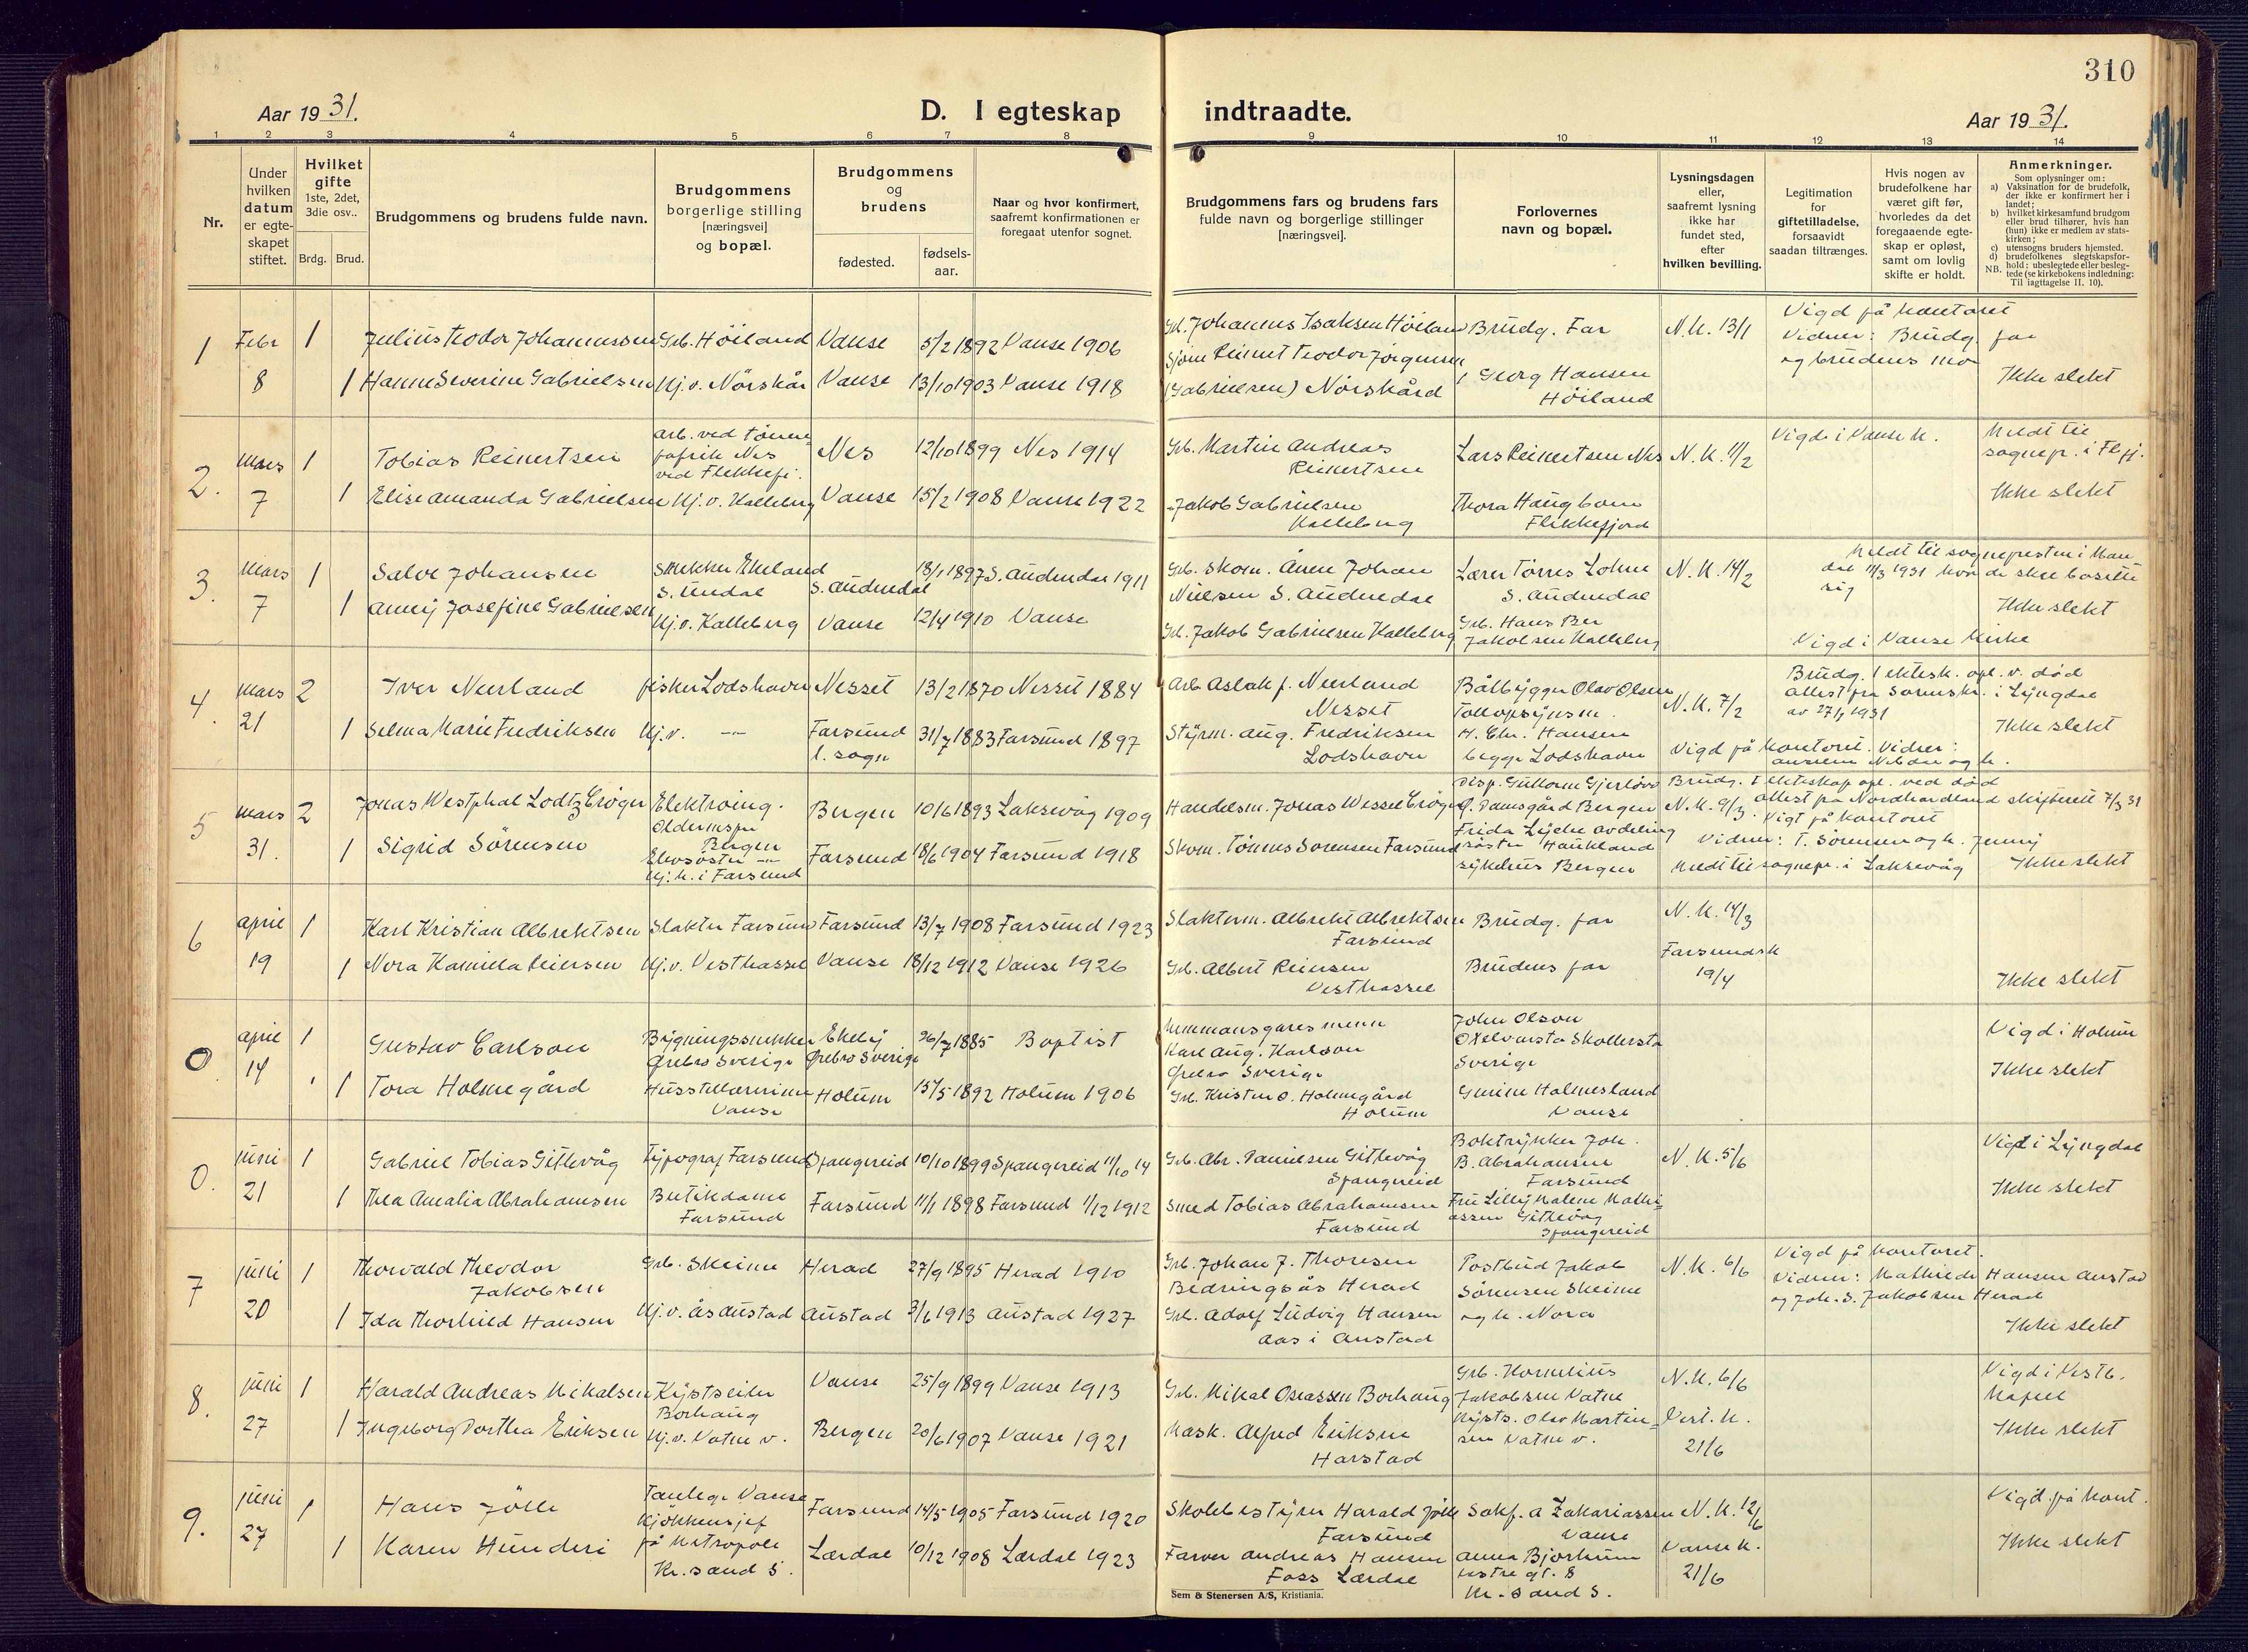 310
Aar 1931.
D. I egteskap indtraadte.
Aar 1931.
1 2 3 4 5 6 7 8 9 10 11 12 13 14
Nr.
Under
hvilken
datum
er egte-
skapet
stiftet.
Hvilket
gifte
1ste, 2det,
3die osv..
Brdg. Brud.
Brudgommens og brudens fulde navn.
Brudgommens
borgerlige stilling
[næringsvei]
og bopæl.
Brudgommens
og
brudens
fødested.
fødsels-
aar.
Naar og hvor konfirmert,
saafremt konfirmationen er
foregaat utenfor sognet.
Brudgommens fars og brudens fars
fulde navn og borgerlige stillinger
[næringsvei].
Forlovernes
navn og bopæl.
Lysningsdagen
eller,
saafremt lysning
ikke har
fundet sted,
efter
hvilken bevilling.
Legitimation
for
giftetilladelse,
forsaavidt
saadan tiltrænges.
Hvis nogen av
brudefolkene har
været gift før,
hvorledes da det
foregaaende egte-
skap er opløst,
samt om lovlig
skifte er holdt.
Anmerkninger.
Som oplysninger om:
a) Vaksination for de brudefolk,
der ikke er konfirmert her i
landet;
b) hvilket kirkesamfund brudgom
eller brud tilhører, hvis han
(hun) ikke er medlem av stats-
kirken;
c) utensogns bruders hjemsted.
d) brudefolkenes slegtskapsfor-
hold: ubeslegtede eller besleg-
NB. tede (se kirkebokens indledning:
Til iagttagelse II. 10).
1 Febr 8
1 Julius Teodor Johannessen Grb. Höiland Vanse 5/2 1892 Vanse 1906
1 Hanne Severine Gabrielsen Hj.v. Nörskår Vanse 13/10 1903 Vanse 1918
Grb. Johannes Isaksen Höiland
Sjöm. Reinert Teodor Jörgensen
(Gabrielsen) Nörskård
Brudg. Far
Georg Hansen
Höiland
N.K. 13/1
Vigd på kontoret
Vidner: Brudg. far
og brudens mor
Ikke slekt
2. Mars 7
1 Tobias Reinertsen
Arb. ved tönne-
fabrik Nes
ved Flekkefj.
Nes 12/10 1899 Nes 1914
1 Elise Amanda Gabrielsen Hj.v. Kalleberg Vanse 15/2 1908 Vanse 1922
Grb. Martin Andreas
Reinertsen
Jakob Gabrielsen
Kalleberg
Lars Reinertsen Nes
Thora Haugbom
Flekkefjord
N.K. 11/2
Vigde i Vanse k.
Meldt til
sognepr. i Flfj.
Ikke slekt
3. Mars 7
1 Salve Johansen
Snekker Ekeland
S. Undal
S. Audnedal
18/1 1897 S. Audnedal 1911
1 Anny Josefine Gabrielsen
Hj.v. Kalleberg Vanse 12/4 1910 Vanse
Grb. skom. Ånen Johan
Nielsen S. Audnedal
Grb. Jakob Gabrielsen Kalleberg
Lærer Tönnes Lohne
S. Audnedal
Grb. Hans Ber
Jakobsen Kalleberg
N.K. 14/2
Meldt til sognepresten i Man
dal 11/3 1931 hvor de skal bosette
sig
Ikke slekt
Vigd i Vanse kirke
4. Mars 21
2 Iver Neerland fisker Lodshavn Nesset 13/2 1870 Nesset 1884
1 Selma Marie Fredriksen Hj.v. -"- Farsund
l. sogn
31/7 1883 Farsund 1897
Arb. Aslak J. Neerland
Nesset
Styrm. Aug. Fredriksen
Lodshavn
Båtbygger Olav Olsen
Tollopsynsm.
H. Chr. Hansen
begge Lodshavn
N.K. 7/2
Brudg. 1 ektesk. opl. v. död
attest fra Sorenskr. i Lyngdal
av 27/1 1931
Ikke slekt
Vigd på kontoret. Vidner:
5 Mars 31.
2 Jonas Westphal Lodtz Cröger
Elektroing.
Bergen
Bergen 10/6 1893 Laksevåg 1909
1 Sigrid Sörensen
Elevsöster -"-
Hj. h. i Farsund
Farsund 18/6 1904 Farsund 1918
Handelsm. Jonas Wessel Cröger
Skom. Tönnes Sörensen Farsund
Disp. Guttorm Gjerlöv
Damsgård Bergen
Frida Lyche avdeling
söster Haukland
sykehus Bergen
Brudg. 1 ekteskap opl. ved död
N.K. 9/3. attest fra Nordhordland skifterett 7/3 31
Vigt på kontoret
Vidner: T. Sörensen og h. Jenny
Meldt til sognepr. i Laksevåg Ikke slekt
6 April 19
1 Karl Kristian Albrektsen Slakter Farsund Farsund 13/7 1908 Farsund 1923
1 Nora Kamilla Reiersen Hj.v. Vesthassel Vanse 18/12 1912 Vanse 1926
Slakterm. Albrekt Albrektsen
Farsund
Grb. Albert Reiersen
Vesthassel
Brudg. far
Brudens far
N.K. 14/3
Farsunds k
19/4
Ikke slekt
0 April 14
1 Gustav Carlson
Bygningssnekker
Örebro Sverige
Ekeby
Örebro Sverige
26/7 1885 Baptist
1 Tora Holmegård
Husstellærerinne
Vanse
Holum 15/5 1892 Holum 1906
Karl Aug. Karlson
Örebro Sverige
Grb. Kristen O. Holmegård
Holum
John Olson
Sverige
Gurine Holmesland
Vanse
Vigd i Holum
Ikke slekt
0. Juni 21
1 Gabriel Tobias Gittlevåg Typograf Farsund Spangereid 10/10 1899 Spangereid 11/10 14
1 Thea Amalia Abrahamsen Butikdame
Farsund
Farsund 11/1 1898 Farsund 1/12 1912
Grb. Abr. Danielsen Gittlevåg
Spangereid
Smed Tobias Abrahamsen
Farsund
Boktrykker Joh.
B. Abrahamsen
Farsund
Fru Lilly Malene Mathi-
assen Gitlevåg
Spangereid
N.K. 5/6
Vigd i Lyngdal
Ikke slekt
7 Juni 20
1 Thorvald Theodor
Jakobsen
Grb. Skeime Herad 27/9 1895 Herad 1910
1 Ida Thorhild Hansen Hj.v. Ås Austad Austad 3/6 1913 Austad 1927
Grb. Johan J. Thoresen
Bedringsås Herad
Grb. Adolf Ludvig Hansen
Aas i Austad
Postbud Jakob
Sörensen Skeime
og h. Nora
N.K. 6/6
Vigd på kontoret.
Vidner: Mathilde Hansen Austad
og Joh. S. Jakobsen Herad
Ikke slekt
8. Juni 27
1 Harald Andreas Mikalsen Kystseiler
Borhaug
Vanse 25/9 1899 Vanse 1913
1 Ingeborg Dorthea Eriksen Hj.v. Vatne v. Bergen 20/6 1907 Vanse 1921
Grb. Mikal Oseassen Borhaug
Mask. Alfred Eriksen
Harstad
Grb. Kornelius
Jakobsen Vatne
Kysts. Olav Martin-
sen Vatne v.
N.K. 6/6
Vest. k.
21/6
Vigd i Vestb.
kapell
Ikke slekt
9. Juni 27
1 Hans Jölle
Tannlege Vanse
Farsund 14/5 1905 Farsund 1920
1 Karen Hunderi
Kjökkensjef
på Metropole
Kr.sand S.
Lærdal 10/12 1908 Lærdal 1923
Skolebestyrer Harald Jölle
Farsund
Farver Andreas Hansen
Foss Lærdal
Sakf. A Zakariassen
Vanse
Anna Bjorhum
Kr.sand S.
N.K. 12/6
Vanse k.
21/6
Vigd på kont.
Ikke slekt
Sem & Stenersen A/S, Kristiania.